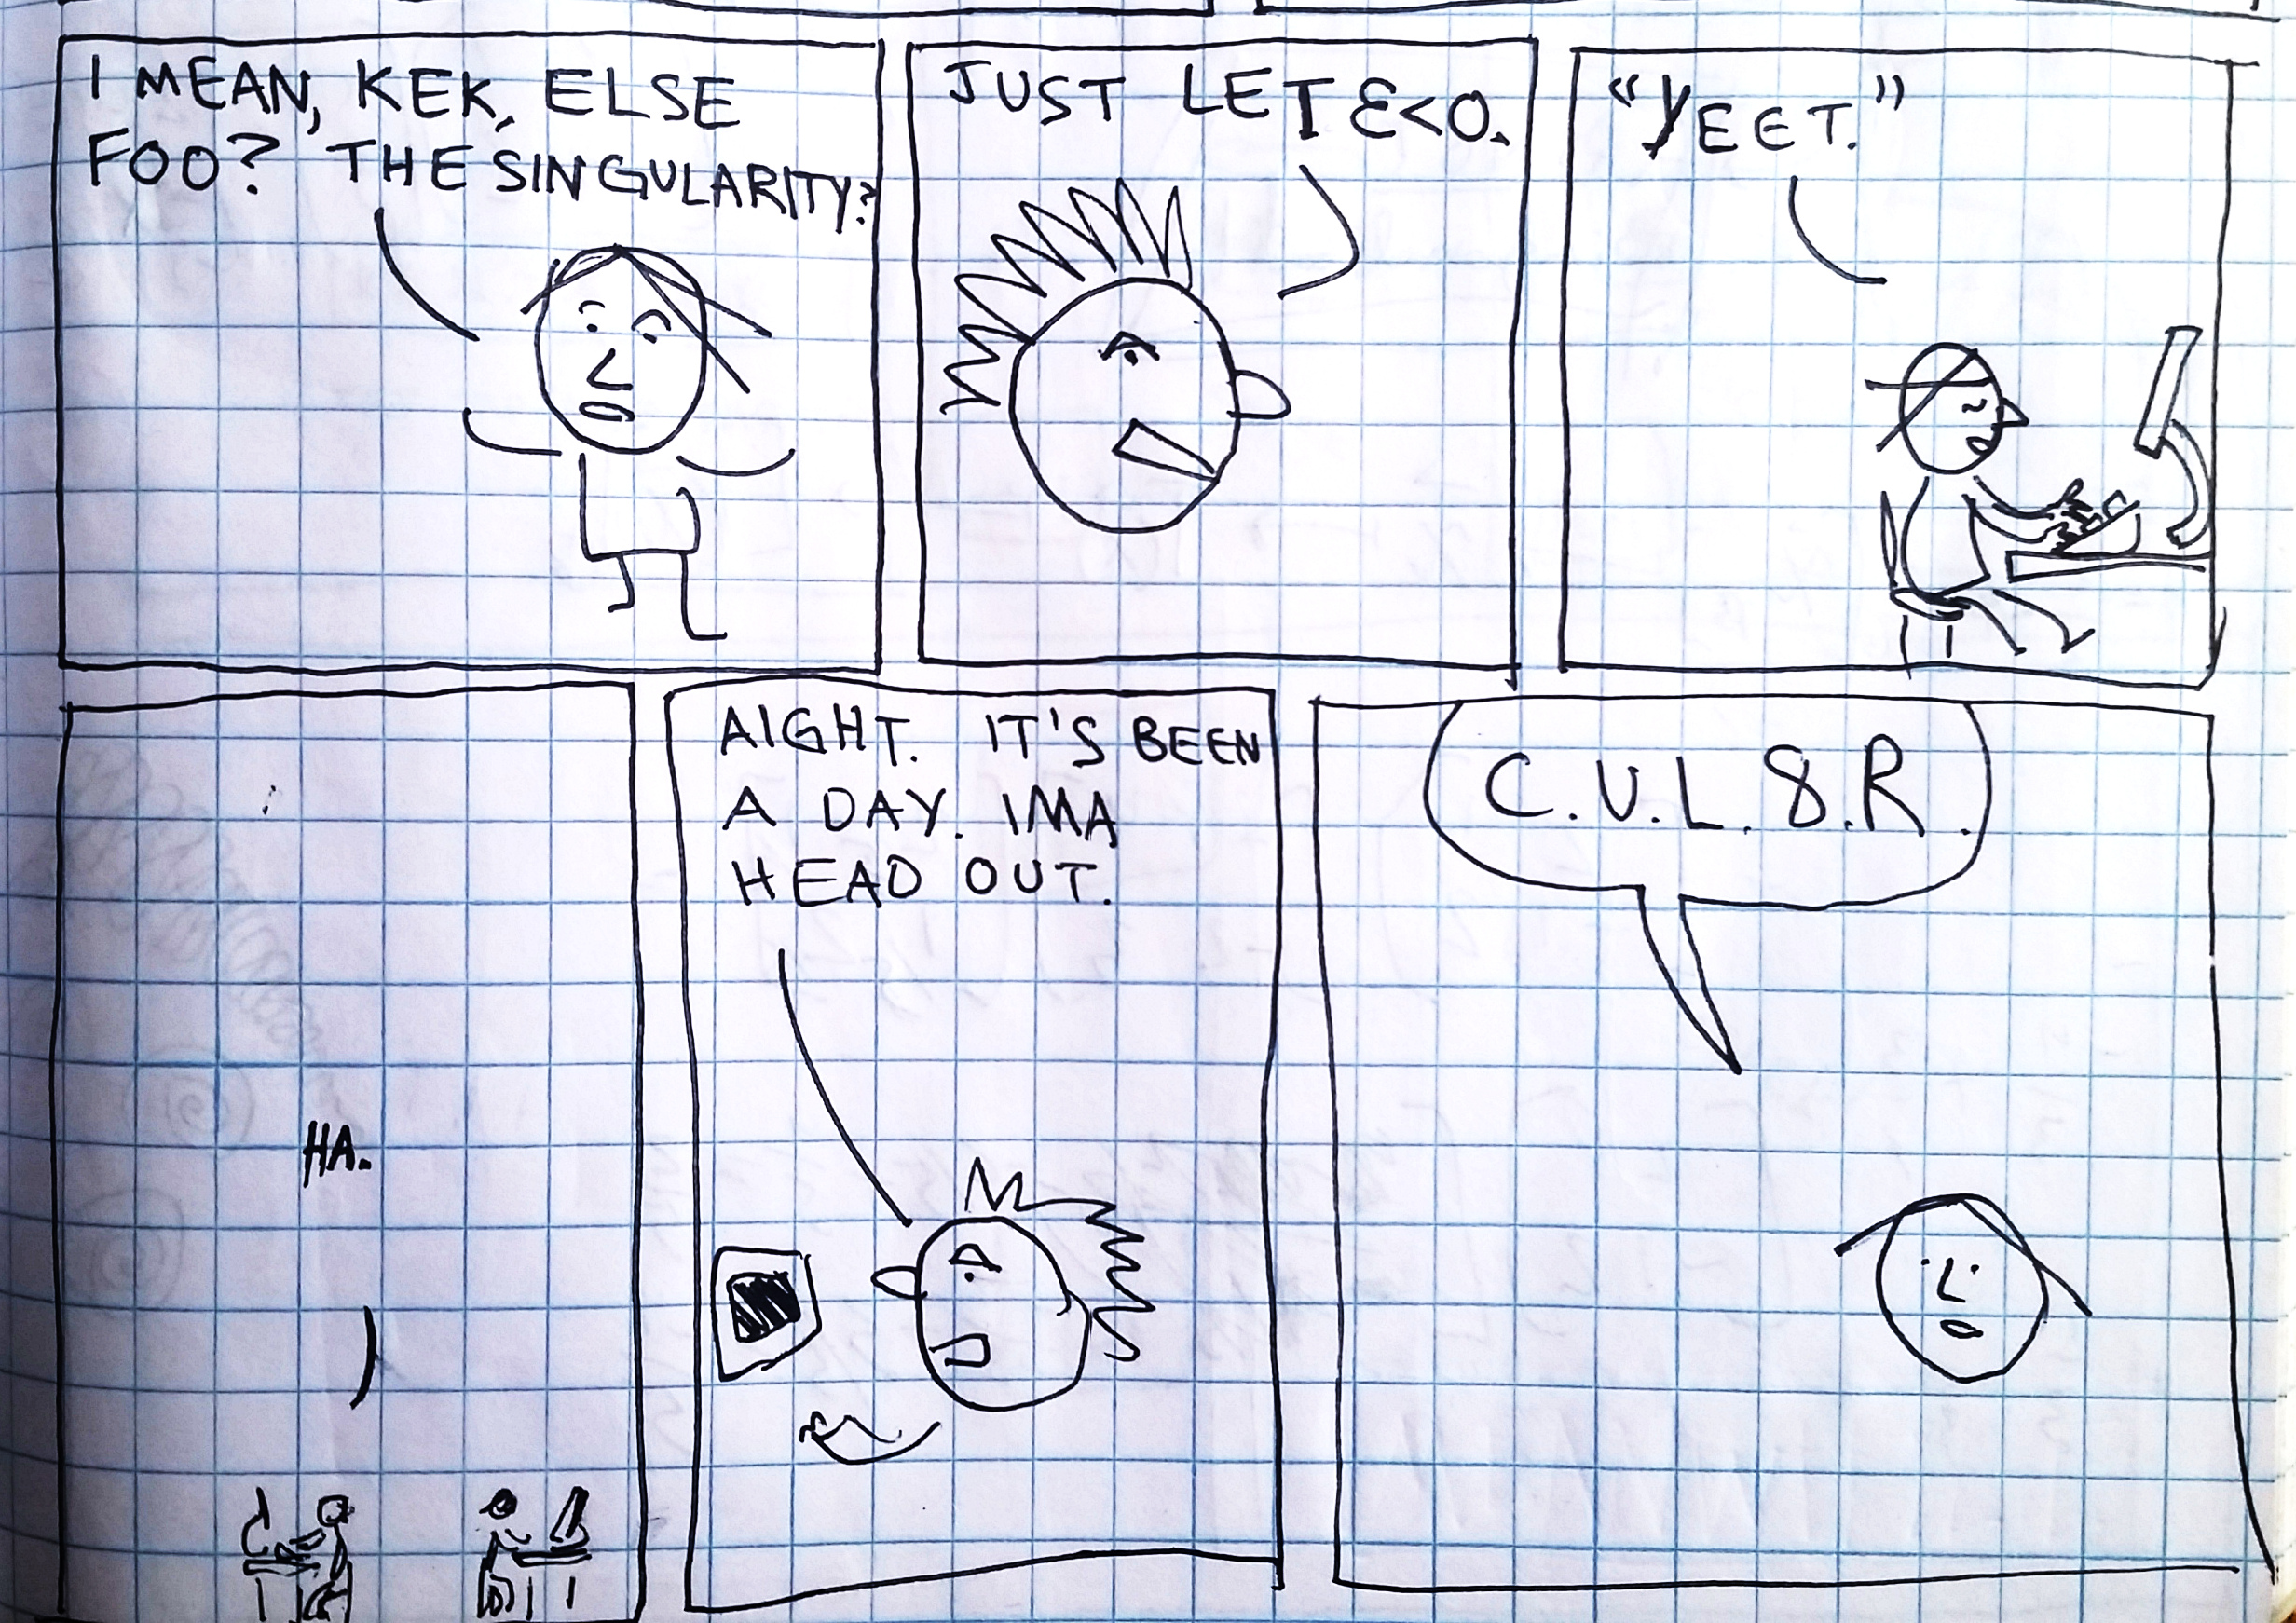 I MEAN, KEK, ELSE
FOO? THE SINGULARITY?
JUST LET Ɛ<0.
"YEET."
HA.
AIGHT. IT'S BEEN
A DAY. IMA
HEAD OUT.
C.U.L.8.R.